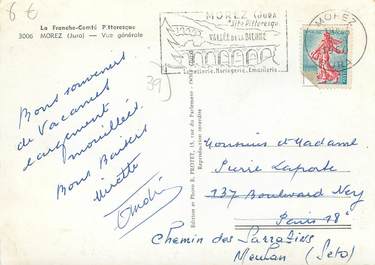 6 €
La Franche-Comté Pittoresque
3006 MOREZ (Jura) — Vue générale
39
MOREZ (JURA)
Site Pittoresque
VALLÉE DE LA BIENNE
Lunetterie, Horlogerie, Emaillerie
MOREZ
JURA
Bons souvenirs
de Vacances
largement
mouillées.
Bons Baisers
Mirette
André
Edition et Photo R. PROTET, 15, rue du Parlement
Reproduction interdite
Monsieur et Madame
Pierre Laporte
137 Boulevard Ney
Paris 18e
Chemin des Sarrazins
Meulan (Seto)